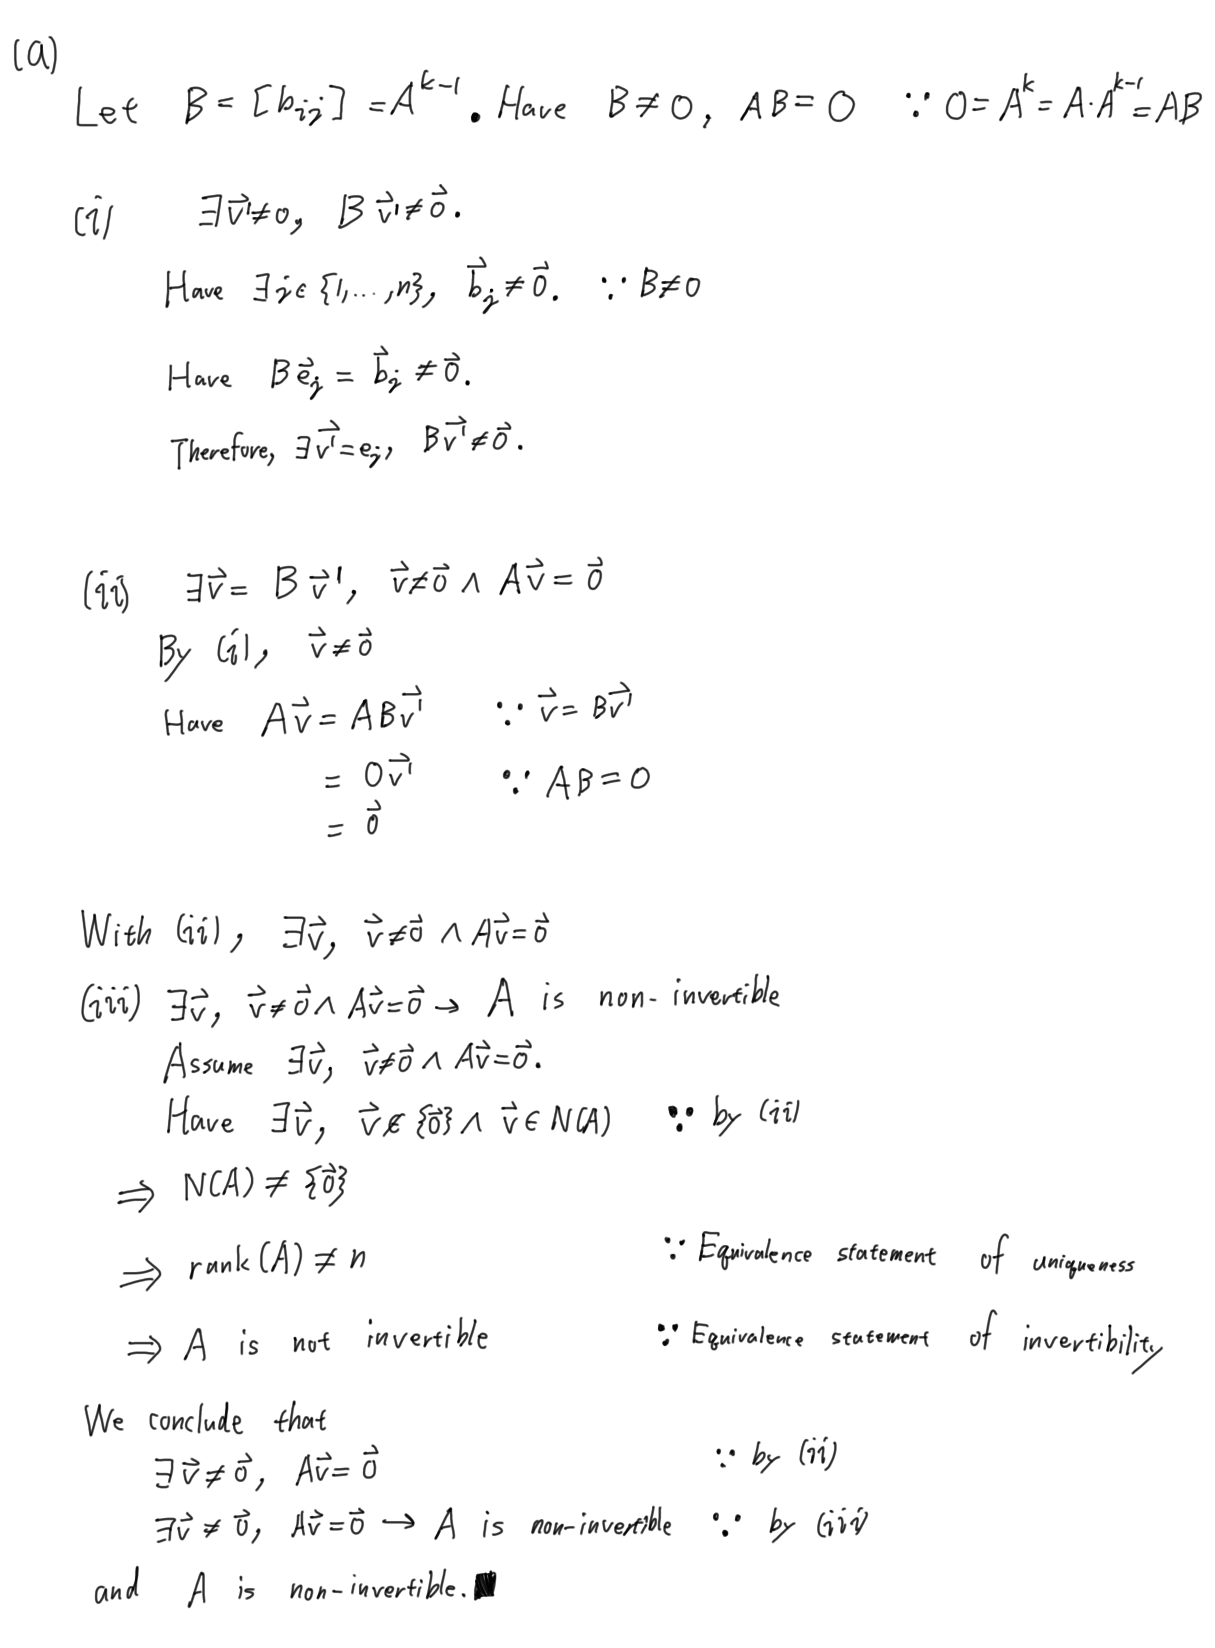 (a)
Let B = [bᵢⱼ] = Aᵏ⁻¹. Have B ≠ O, AB = O ∵ O = Aᵏ = A·Aᵏ⁻¹ = AB
(i) ∃v⃗' ≠ 0, B v⃗' ≠ 0⃗.
Have ∃j ∈ {1,...,n}, b⃗ⱼ ≠ 0⃗. ∵ B ≠ O
Have B e⃗ⱼ = b⃗ⱼ ≠ 0⃗.
Therefore, ∃v⃗' = eⱼ, B v⃗' ≠ 0⃗.
(ii) ∃v⃗ = B v⃗', v⃗ ≠ 0⃗ ∧ A v⃗ = 0⃗
By (i), v⃗ ≠ 0⃗
Have A v⃗ = AB v⃗' ∵ v⃗ = B v⃗'
= O v⃗' ∵ AB = O
= 0⃗
With (ii), ∃v⃗, v⃗ ≠ 0⃗ ∧ A v⃗ = 0⃗
(iii) ∃v⃗, v⃗ ≠ 0⃗ ∧ A v⃗ = 0⃗ → A is non-invertible
Assume ∃v⃗, v⃗ ≠ 0⃗ ∧ A v⃗ = 0⃗.
Have ∃v⃗, v⃗ ∉ {0⃗} ∧ v⃗ ∈ N(A) ∵ by (ii)
⇒ N(A) ≠ {0⃗}
⇒ rank(A) ≠ n ∵ Equivalence statement of uniqueness
⇒ A is not invertible ∵ Equivalence statement of invertibility
We conclude that
∃v⃗ ≠ 0⃗, A v⃗ = 0⃗ ∵ by (ii)
∃v⃗ ≠ 0⃗, A v⃗ = 0⃗ → A is non-invertible ∵ by (iii)
and A is non-invertible. ■